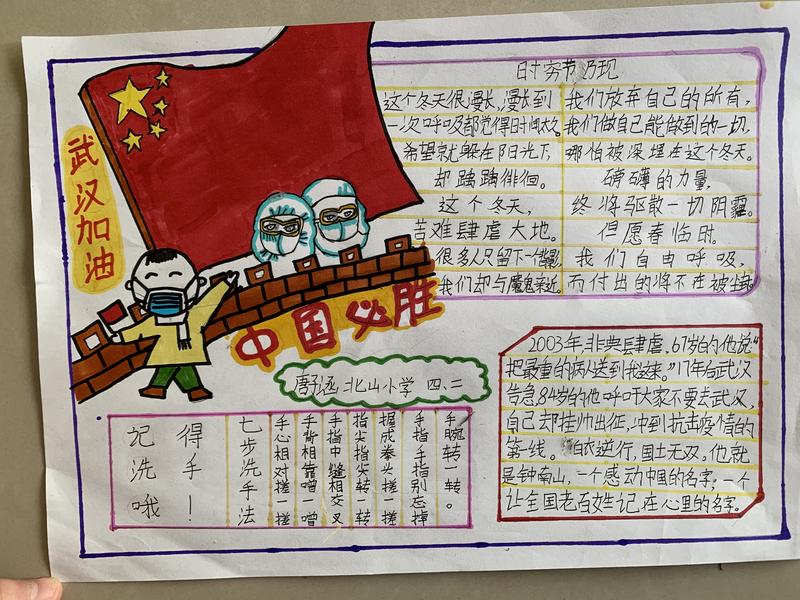 时穷节乃现
这个冬天很漫长,漫长到
一次呼吸都觉得时间太久。
希望就躲在阳光下,
却踽踽徘徊。
这个冬天,
苦难肆虐大地。
很多人只留下一个背影,
我们却与魔鬼亲近。
我们放弃自己的所有,
我们做自己能做到的一切,
哪怕被深埋在这个冬天。
磅礴的力量,
终将驱散一切阴霾。
但愿春临时。
我们自由呼吸,
而付出的将不在被
武汉加油
中国必胜
北山小学 四、二
2003年,非典肆虐.67岁的他说“
把最重的病人送到我这来。”17年后武汉
告急.84岁的他呼吁大家不要去武汉,
自己却挂帅出征,冲到抗击疫情的
第一线。白衣逆行,国士无双,他就
是钟南山,一个感动中国的名字,一个
让全国老百姓记在心里的名字。
记洗哦
得手!
七步洗手法
手心相对搓一搓
手背相靠噌一噌
手指中缝相交叉
指尖指尖转一转
握成拳头搓一搓
手指手指别忘掉
手腕转一转。